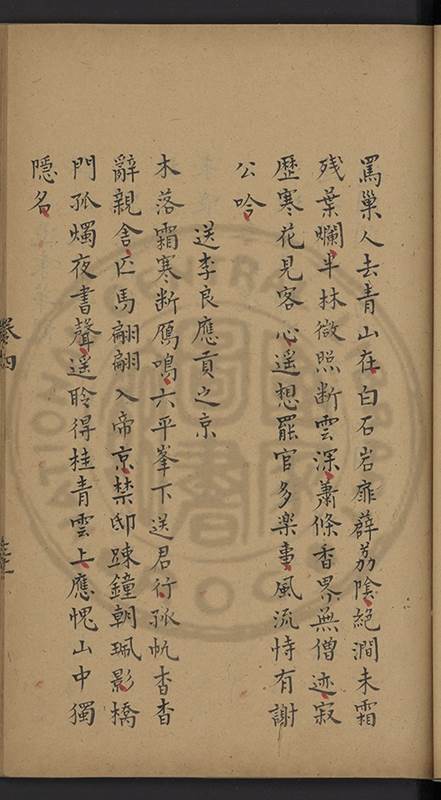 罵巢人去青山在白石岩扉薜荔陰絕澗未霜
残葉爛半林微照断雲深蕭條香界無僧迹寂
歷寒花見客心遥想罷官多樂事風流恃有謝
公吟
送李良應貢之京
木落霜寒断鴈鳴六平峯下送君行孤帆杳杳
辭親舍匹馬翩翩入帝京禁邸踈鐘朝珮影橋
門孤燭夜書聲遥聆得桂青雲上應愧山中獨
隱名